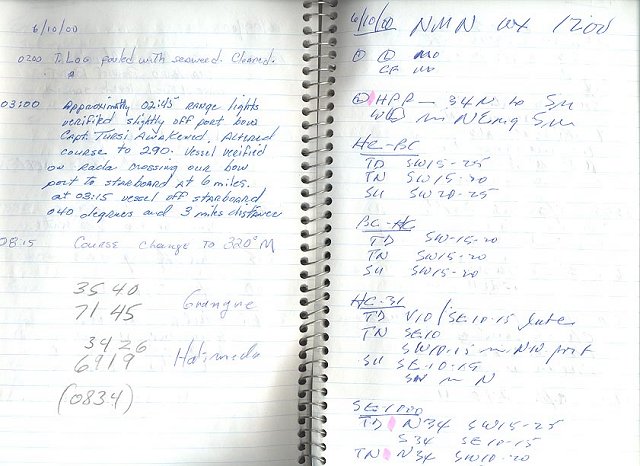 6/10/00
0200 T. Log fouled with seaweed. Cleared.
03:00 Approximatly 02:45 range lights
verifiked slightly off port bow
Capt. Tursi Awakened, Altered
course to 290. vessel verified
on rada crossing our bow
port to starboard at 6 miles.
at 03:15 vessel off starboard
040 degrees and 3 miles distance
08:15 Course change to 320° M
35 40
71.45
34 26
6919
(0834)
6/10/00 NMN wx 1200
HPP - 34N to
in NEng
HC-BC
TD SW15-25
TN SW15-30
SU SW20-25
BC-HC
TD SW-15-20
TN SW15-20
SU SW15-20
HC-31
TD V10/SE10-15 later
TN SE10
SW10-15 in NW part
SU SE10-15
in N
SE1000
TD N34 SW15-25
S34 SE10-15
TN N34 SW10-20